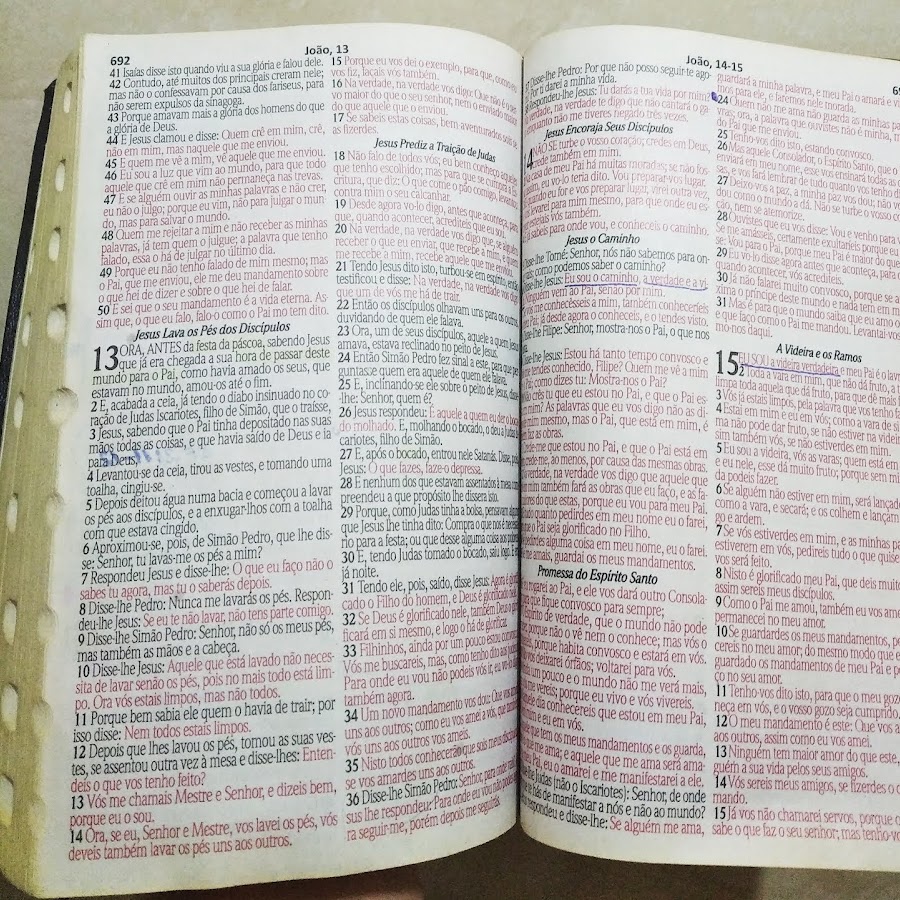 692
João, 13
41 Isaías disse isto quando viu a sua glória e falou dele.
42 Contudo, até muitos dos principais creram nele;
mas não o confessavam por causa dos fariseus, para
não serem expulsos da sinagoga.
43 Porque amavam mais a glória dos homens do que
a glória de Deus.
44 E Jesus clamou e disse: Quem crê em mim, crê,
não em mim, mas naquele que me enviou.
45 E quem me vê a mim, vê aquele que me enviou.
46 Eu sou a luz que vim ao mundo, para que todo
aquele que crê em mim não permaneça nas trevas.
47 E se alguém ouvir as minhas palavras e não crer,
eu não o julgo; porque eu vim, não para julgar o mun-
do, mas para salvar o mundo.
48 Quem me rejeitar a mim e não receber as minhas
palavras, já tem quem o julgue; a palavra que tenho
falado, essa o há de julgar no último dia.
49 Porque eu não tenho falado de mim mesmo; mas
o Pai, que me enviou, ele me deu mandamento sobre
o que hei de dizer e sobre o que hei de falar.
50 E sei que o seu mandamento é a vida eterna. As-
sim que, o que eu falo, falo-o como o Pai mo tem dito.
Jesus Lava os Pés dos Discípulos
13 ORA, ANTES da festa da páscoa, sabendo Jesus
que já era chegada a sua hora de passar deste
mundo para o Pai, como havia amado os seus, que
estavam no mundo, amou-os até o fim.
2 E, acabada a ceia, já tendo o diabo insinuado no co-
ração de Judas Iscariotes, filho de Simão, que o traísse,
3 Jesus, sabendo que o Pai tinha depositado nas suas
mãos todas as coisas, e que havia saído de Deus e ia
para Deus,
4 Levantou-se da ceia, tirou as vestes, e tomando uma
toalha, cingiu-se.
5 Depois deitou água numa bacia e começou a lavar
os pés aos discípulos, e a enxugar-lhos com a toalha
com que estava cingido.
6 Aproximou-se, pois, de Simão Pedro, que lhe dis-
se: Senhor, tu lavas-me os pés a mim?
7 Respondeu Jesus e disse-lhe: O que eu faço não o
sabes tu agora, mas tu o saberás depois.
8 Disse-lhe Pedro: Nunca me lavarás os pés. Respon-
deu-lhe Jesus: Se eu te não lavar, não tens parte comigo.
9 Disse-lhe Simão Pedro: Senhor, não só os meus pés,
mas também as mãos e a cabeça.
10 Disse-lhe Jesus: Aquele que está lavado não neces-
sita de lavar senão os pés, pois no mais todo está lim-
po. Ora vós estais limpos, mas não todos.
11 Porque bem sabia ele quem o havia de trair; por
isso disse: Nem todos estais limpos.
12 Depois que lhes lavou os pés, tomou as suas ves-
tes, se assentou outra vez à mesa e disse-lhes: Enten-
deis o que vos tenho feito?
13 Vós me chamais Mestre e Senhor, e dizeis bem,
porque eu o sou.
14 Ora, se eu, Senhor e Mestre, vos lavei os pés, vós
deveis também lavar os pés uns aos outros.
15 Porque eu vos dei o exemplo, para que, como eu
vos fiz, façais vós também.
16 Na verdade, na verdade vos digo: Que não é o ser-
vo maior do que o seu senhor, nem o enviado maior
do que aquele que o enviou.
17 Se sabeis estas coisas, bem aventurados sereis se
as fizerdes.
Jesus Prediz a Traição de Judas
18 Não falo de todos vós; eu bem conheço aqueles
que tenho escolhido; mas para que se cumpra a Es-
critura, que diz: O que come o pão comigo, levantou
contra mim o seu calcanhar.
19 Desde agora vo-lo digo, antes que aconteça, para
que, quando acontecer, acrediteis que eu sou.
20 Na verdade, na verdade vos digo que, se alguém
receber o que eu enviar, que recebe a mim, e quem
me recebe a mim, recebe aquele que me enviou.
21 Tendo Jesus dito isto, turbou-se em espírito, e
testificou e disse: Na verdade, na verdade vos digo
que um de vós me há de trair.
22 Então os discípulos olhavam uns para os outros,
duvidando de quem ele falava.
23 Ora, um de seus discípulos, aquele a quem Jesus
amava, estava reclinado no peito de Jesus.
24 Então Simão Pedro fez sinal a este, para que per-
guntasse quem era aquele de quem ele falava.
25 E, inclinando-se ele sobre o peito de Jesus, disse-
lhe: Senhor, quem é?
26 Jesus respondeu: É aquele a quem eu der o bocado
molhado. E, molhando o bocado, o deu a Judas Is-
cariotes, filho de Simão.
27 E, após o bocado, entrou nele Satanás. Disse, pois,
Jesus: O que fazes, faze-o depressa.
28 E nenhum dos que estavam assentados à mesa com-
preendeu a que propósito lhe dissera isto.
29 Porque, como Judas tinha a bolsa, pensavam alguns
que Jesus lhe tinha dito: Compra o que nos é necessá-
rio para a festa; ou que desse alguma coisa aos pobres.
30 E, tendo Judas tomado o bocado, saiu logo. E era
já noite.
31 Tendo ele, pois, saído, disse Jesus: Agora é glorifi-
cado o Filho do homem, e Deus é glorificado nele.
32 Se Deus é glorificado nele, também Deus o glori-
ficará em si mesmo, e logo o há de glorificar.
33 Filhinhos, ainda por um pouco estou convosco.
Vós me buscareis, mas, como tenho dito aos judeus:
Para onde eu vou não podeis vós ir, eu vo-lo digo
também agora.
34 Um novo mandamento vos dou: Que vos ameis
uns aos outros; como eu vos amei a vós, que também
vós uns aos outros vos ameis.
35 Nisto todos conhecerão que sois meus discípulos,
se vos amardes uns aos outros.
36 Disse-lhe Simão Pedro: Senhor, para onde vais? Je-
sus lhe respondeu: Para onde eu vou não podes ago-
ra seguir-me, porém depois me seguirás.
João, 14-15
Disse-lhe Pedro: Por que não posso seguir-te ago-
Por ti darei a minha vida.
Respondeu-lhe Jesus: Tu darás a tua vida por mim?
verdade, na verdade te digo que não cantará o ga-
enquanto não me tiveres negado três vezes.
Jesus Encoraja Seus Discípulos
NÃO SE turbe o vosso coração; credes em Deus,
crede também em mim.
casa de meu Pai há muitas moradas; se não fos-
eu vo-lo teria dito. Vou preparar-vos lugar.
quando eu for e vos preparar lugar, virei outra vez,
levarei para mim mesmo, para que onde eu es-
vós também.
para onde vou, e conheceis o caminho.
Jesus o Caminho
Disse-lhe Tomé: Senhor, nós não sabemos para on-
vais; como podemos saber o caminho?
Disse-lhe Jesus: Eu sou o caminho, a verdade e a vi
Ninguém vem ao Pai, senão por mim.
me conhecêsseis a mim, também conheceríeis
Pai; já desde agora o conheceis, e o tendes visto.
Disse-lhe Filipe: Senhor, mostra-nos o Pai, o que nos
Disse-lhe Jesus: Estou há tanto tempo convosco e
tendes conhecido, Filipe? Quem me vê a mim
Pai; como dizes tu: Mostra-nos o Pai?
crês tu que eu estou no Pai, e que o Pai es-
mim? As palavras que eu vos digo não as di-
mim mesmo, mas o Pai, que está em mim, é
faz as obras.
me que estou no Pai, e que o Pai está em
ao menos, por causa das mesmas obras.
verdade, na verdade vos digo que aquele que
mim também fará as obras que eu faço, e as fa-
do que estas, porque eu vou para meu Pai.
quanto pedirdes em meu nome eu o farei,
o Pai seja glorificado no Filho.
pedirdes alguma coisa em meu nome, eu o farei.
me amais, guardai os meus mandamentos.
Promessa do Espírito Santo
rogarei ao Pai, e ele vos dará outro Consola-
que fique convosco para sempre;
Espírito de verdade, que o mundo não pode
porque não o vê nem o conhece; mas vós o
porque habita convosco e estará em vós.
vos deixarei órfãos; voltarei para vós.
um pouco e o mundo não me verá mais,
me vereis; porque eu vivo e vós vivereis.
dia conhecereis que estou em meu Pai,
e eu em vós.
que tem os meus mandamentos e os guarda,
que me ama; e aquele que me ama será ama-
Pai, eu o amarei e me manifestarei a ele.
lhe Judas (não o Iscariotes): Senhor, de onde
hás de manifestar a nós e não ao mundo?
respondeu e disse-lhe: Se alguém me ama,
guardará a minha palavra, e meu Pai o amará e vi
mos para ele, e faremos nele morada.
24 Quem não me ama não guarda as minhas pa
vras; ora, a palavra que ouvistes não é minha,
do Pai que me enviou.
25 Tenho-vos dito isto, estando convosco.
26 Mas aquele Consolador, o Espírito Santo, que
enviará em meu nome, esse vos ensinará todas as
e vos fará lembrar de tudo quanto vos tenho di
27 Deixo-vos a paz, a minha paz vos dou; não vo
dou como o mundo a dá. Não se turbe o vosso co
ção, nem se atemorize.
28 Ouvistes que eu vos disse: Vou e venho para v
Se me amásseis, certamente exultaríeis porque eu
se: Vou para o Pai; porque meu Pai é maior do que
29 Eu vo-lo disse agora antes que aconteça, para q
quando acontecer, vós acrediteis.
30 Já não falarei muito convosco, porque se a
xima o príncipe deste mundo e nada tem em mi
31 Mas é para que o mundo saiba que eu amo o
e que faço como o Pai me mandou. Levantai-vo
mo-nos daqui.
A Videira e os Ramos
15 EU SOU a videira verdadeira e meu Pai é o lavr
2 Toda a vara em mim, que não dá fruto, a t
limpa toda aquela que dá fruto, para que dê mais
3 Vós já estais limpos, pela palavra que vos tenho fa
4 Estai em mim e eu em vós; como a vara de si
ma não pode dar fruto, se não estiver na videira
sim também vós, se não estiverdes em mim.
5 Eu sou a videira, vós as varas; quem está em
e eu nele, esse dá muito fruto; porque sem mi
da podeis fazer.
6 Se alguém não estiver em mim, será lançado
como a vara, e secará; e os colhem e lançam
go e ardem.
7 Se vós estiverdes em mim, e as minhas pa
estiverem em vós, pedireis tudo o que quise
vos será feito.
8 Nisto é glorificado meu Pai, que deis muito
assim sereis meus discípulos.
9 Como o Pai me amou, também eu vos ame
permanecei no meu amor.
10 Se guardardes os meus mandamentos, pe
cereis no meu amor; do mesmo modo que e
guardado os mandamentos de meu Pai e p
ço no seu amor.
11 Tenho-vos dito isto, para que o meu gozo
neça em vós, e o vosso gozo seja cumprido.
12 O meu mandamento é este: Que vos a
aos outros, assim como eu vos amei.
13 Ninguém tem maior amor do que este,
guém a sua vida pelos seus amigos.
14 Vós sereis meus amigos, se fizerdes o
mando.
15 Já vos não chamarei servos, porque o
sabe o que faz o seu senhor; mas tenho-vo